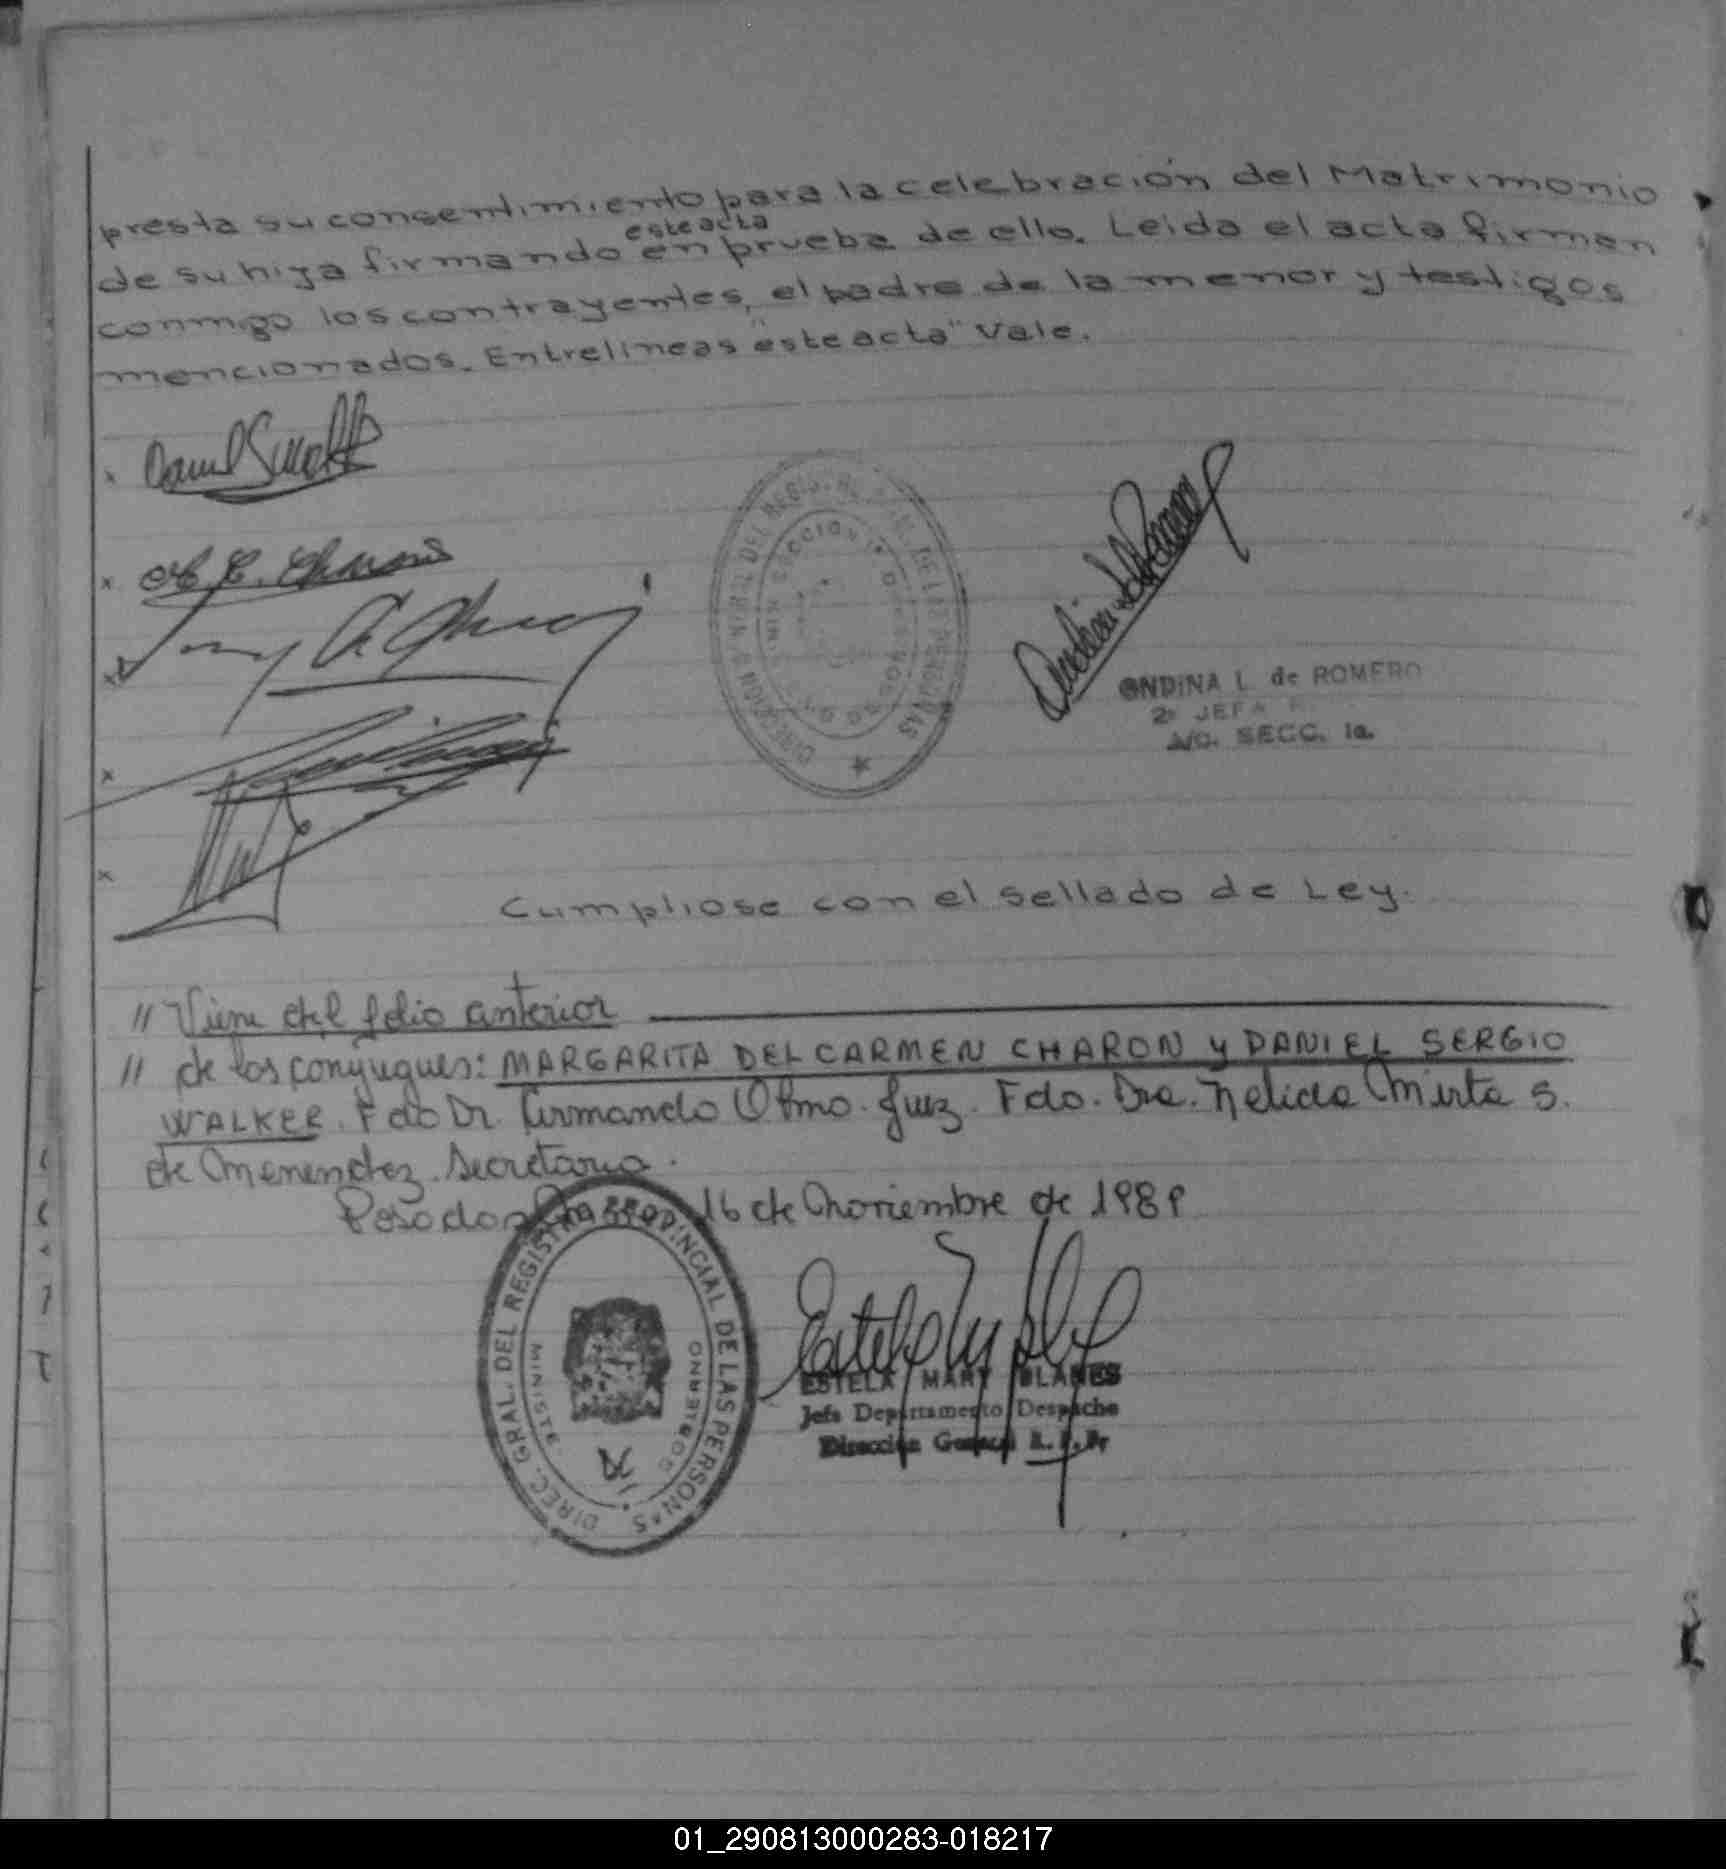 presta su consentimiento para la celebración del Matrimonio
este acta
de su hija firmando en prueba de ello. Leida el acta firman
conmigo los contrayentes, el padre de la menor y testigos
mencionados. Entrelineas "este acta" Vale.
DIRECCION GENERAL DEL REGISTRO PROVINCIAL DE LAS PERSONAS
SECCION 1a
ONDINA L. de ROMERO
2a JEFA
A/C. SECC. 1a.
Cumpliose con el sellado de Ley.
// Viene del folio anterior
// de los conyugues: MARGARITA DEL CARMEN CHARON y DANIEL SERGIO
WALKER. Fdo Dr. Armando Olmo. Juez. Fdo. Dra. Nelida Mirta S.
de Menendez. Secretaria.
Posadas 16 de Noviembre de 1989
DIREC. GRAL. DEL REGISTRO PROVINCIAL DE LAS PERSONAS
MINISTE. GOBIERNO
ESTELA MARY BLANES
Jefa Departamento Despacho
Dirección General R. P. Pr
01_290813000283-018217